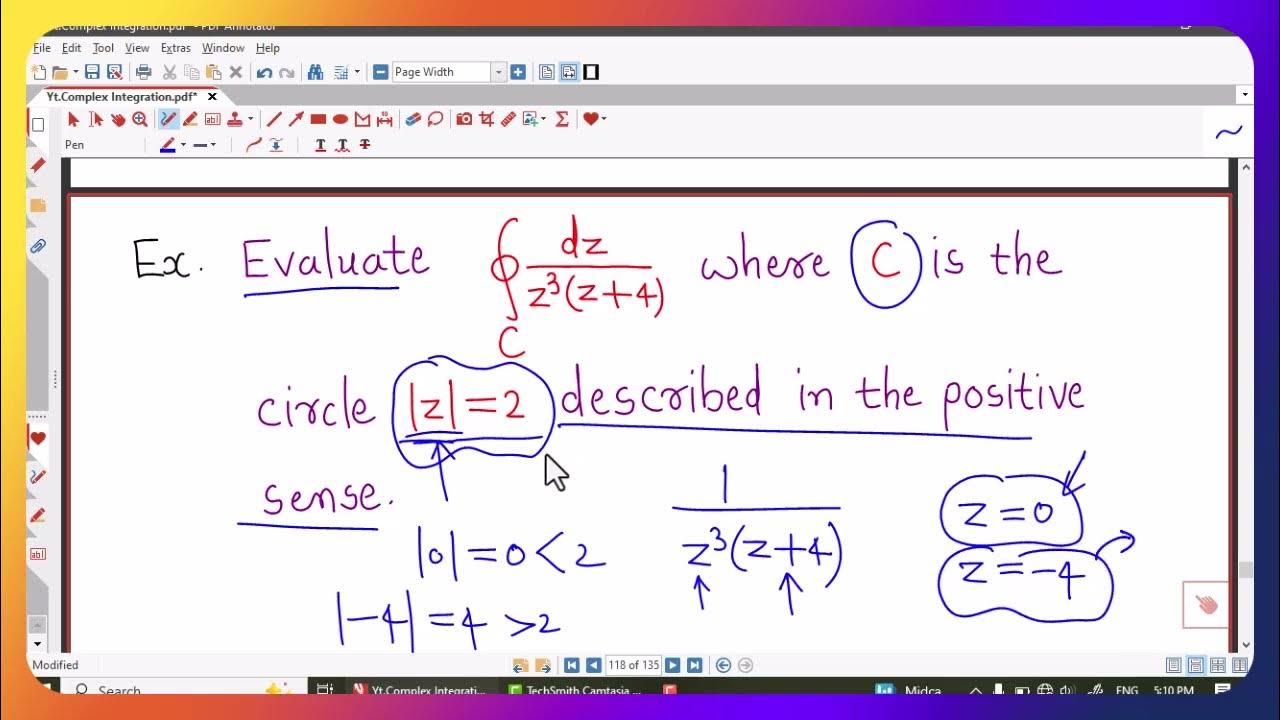 Yt.Complex Integration.pdf* - PDF Annotator
File Edit Tool View Extras Window Help
Page Width
Yt.Complex Integration.pdf*
Pen
Ex. Evaluate ∮_C dz/(z³(z+4)) where C is the
circle |z| = 2 described in the positive
sense.
1/(z³(z+4))
z = 0
|0| = 0 < 2
z = -4
|-4| = 4 > 2
Modified 118 of 135
Search Yt.Complex Integrati... TechSmith Camtasia ... Midca... ENG 5:10 PM